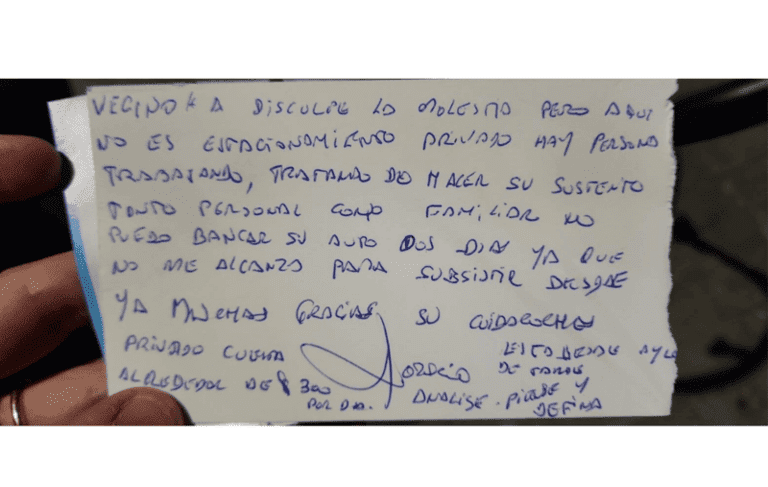 VECINO A DISCULPE LA MOLESTIA PERO AQUI
NO ES ESTACIONAMIENTO PRIVADO HAY PERSONA
TRABAJANDO, TRATANDO DE HACER SU SUSTENTO
TANTO PERSONAL COMO FAMILIAR NO
PUEDO BANCAR SU AUTO DOS DIAS YA QUE
NO ME ALCANZA PARA SUBSISTIR DESDE
YA MUCHAS GRACIAS SU CUIDACOCHES
PRIVADO CUESTA
ALREDEDOR DE $ 300
POR DIA.
ORACIO
ESTA DESDE AYER
DE TARDE
ANALISE. PIENSE Y
DEFINA